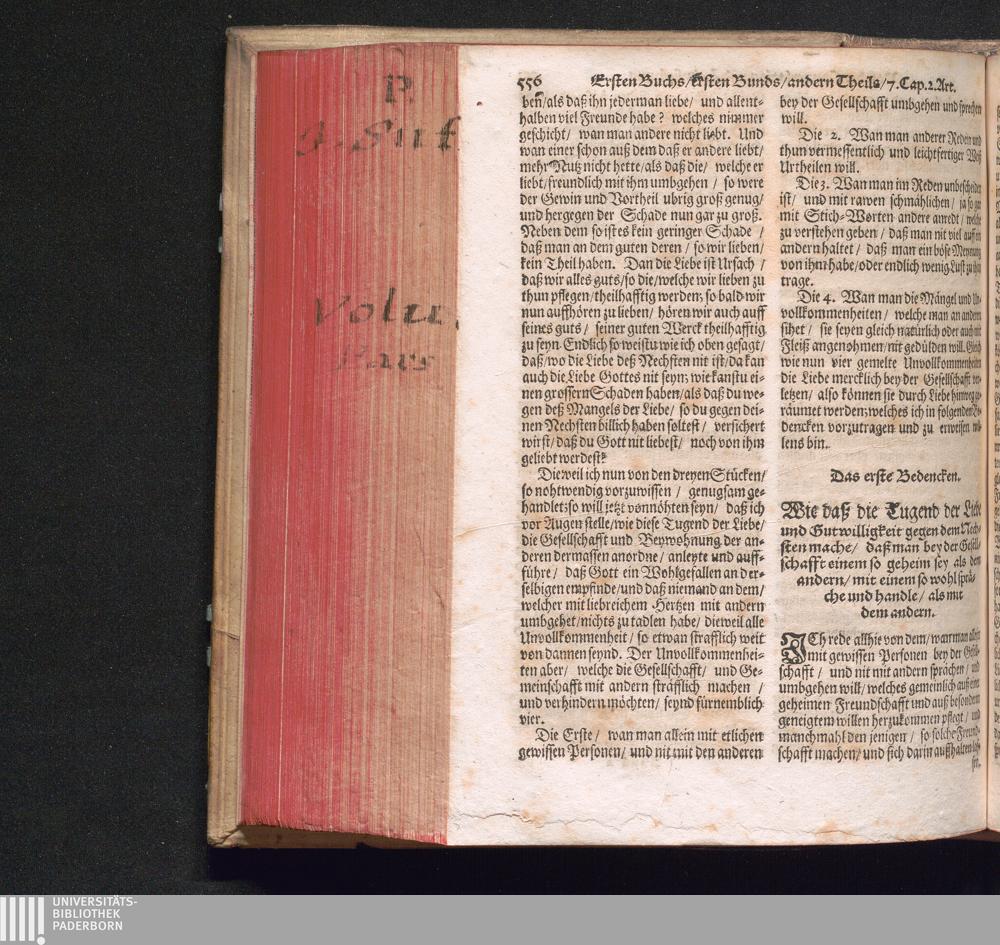 P.
J. Suf
Volu.
Pars
556 Ersten Buchs/ Ersten Bunds/ andern Theils/ 7. Cap. 2. Art.
ben/ als daß ihn jederman liebe/ und allent-
halben viel Freunde habe? welches nimmer
geschicht/ wan man andere nicht liebt. Und
wan einer schon auß dem daß er andere liebt/
mehr Nutz nicht hette/ als daß die/ welche er
liebt/ freundlich mit ihm umbgehen/ so were
der Gewin und Vortheil ubrig groß genug/
und hergegen der Schade nun gar zu groß.
Neben dem so ist es kein geringer Schade/
daß man an dem guten deren/ so wir lieben/
kein Theil haben. Dan die Liebe ist Ursach/
daß wir alles guts/ so die/ welche wir lieben zu
thun pflegen/ theilhafftig werden; so bald wir
nun auffhören zu lieben/ hören wir auch auff
seines guts/ seiner guten Werck theilhafftig
zu seyn. Endlich so weistu wie ich oben gesagt/
daß/ wo die Liebe deß Nechsten nit ist/ da kan
auch die Liebe Gottes nit seyn; wie kanstu ei-
nen grössern Schaden haben/ als daß du we-
gen deß Mangels der Liebe/ so du gegen dei-
nen Nechsten billich haben soltest/ versichert
wirst/ daß du Gott nit liebest/ noch von ihm
geliebt werdest?
Dieweil ich nun von den dreyen Stücken/
so nohtwendig vorzuwissen/ genugsam ge-
handlet; so will jetzt vonnöhten seyn/ daß ich
vor Augen stelle/ wie diese Tugend der Liebe/
die Gesellschafft und Beywohnung der an-
deren dermassen anordne/ anleyte und auff-
führe/ daß Gott ein Wohlgefallen an der-
selbigen empfinde/ und daß niemand an dem/
welcher mit liebreichem Hertzen mit andern
umbgehet/ nichts zu tadlen habe/ dieweil alle
Unvollkommenheit/ so etwan strafflich weit
von dannen seynd. Der Unvollkommenhei-
ten aber/ welche die Gesellschafft/ und Ge-
meinschafft mit andern sträfflich machen/
und verhindern möchten/ seynd fürnemblich
vier.
Die Erste/ wan man allein mit etlichen
gewissen Personen/ und nit mit den anderen
bey der Gesellschafft umbgehen und sprechen
will.
Die 2. Wan man anderer Reden und
thun vermessentlich und leichtfertiger Weiß
Urtheilen will.
Die 3. Wan man im Reden unbescheiden
ist/ und mit rawen schmählichen/ ja so gar
mit Stich-Worten andere anredt/ welche
zu verstehen geben/ daß man nit viel auff ein
andern haltet/ daß man ein böse Meynung
von ihm habe/ oder endlich wenig Lust zu ihm
trage.
Die 4. Wan man die Mängel und Un-
vollkommenheiten/ welche man an andern
sihet/ sie seyen gleich natürlich oder auch mit
Fleiß angenohmen/ nit gedülden will. Gleich
wie nun vier gemelte Unvollkommenheiten
die Liebe mercklich bey der Gesellschafft ver-
letzen/ also können sie durch Liebe hinweg ge-
räumet werden; welches ich in folgenden Be-
dencken vorzutragen und zu erweisen wil-
lens bin.
Das erste Bedencken.
Wie daß die Tugend der Liebe
und Gutwilligkeit gegen dem Nech-
sten mache/ daß man bey der Gesell-
schafft einem so geheim sey als dem
andern/ mit einem so wohl sprä-
che und handle/ als mit
dem andern.
ICh rede allhie von dem/ wan man allein
mit gewissen Personen bey der Gesell-
schafft/ und nit mit andern sprächen/ und
umbgehen will/ welches gemeinlich auß einer
geheimen Freundschafft und auß besonderm
geneigtem willen herzukommen pflegt/ und
manchmahl den jenigen/ so solche Freund-
schafft machen/ und sich darin auffhalten
UNIVERSITÄTS-
BIBLIOTHEK
PADERBORN